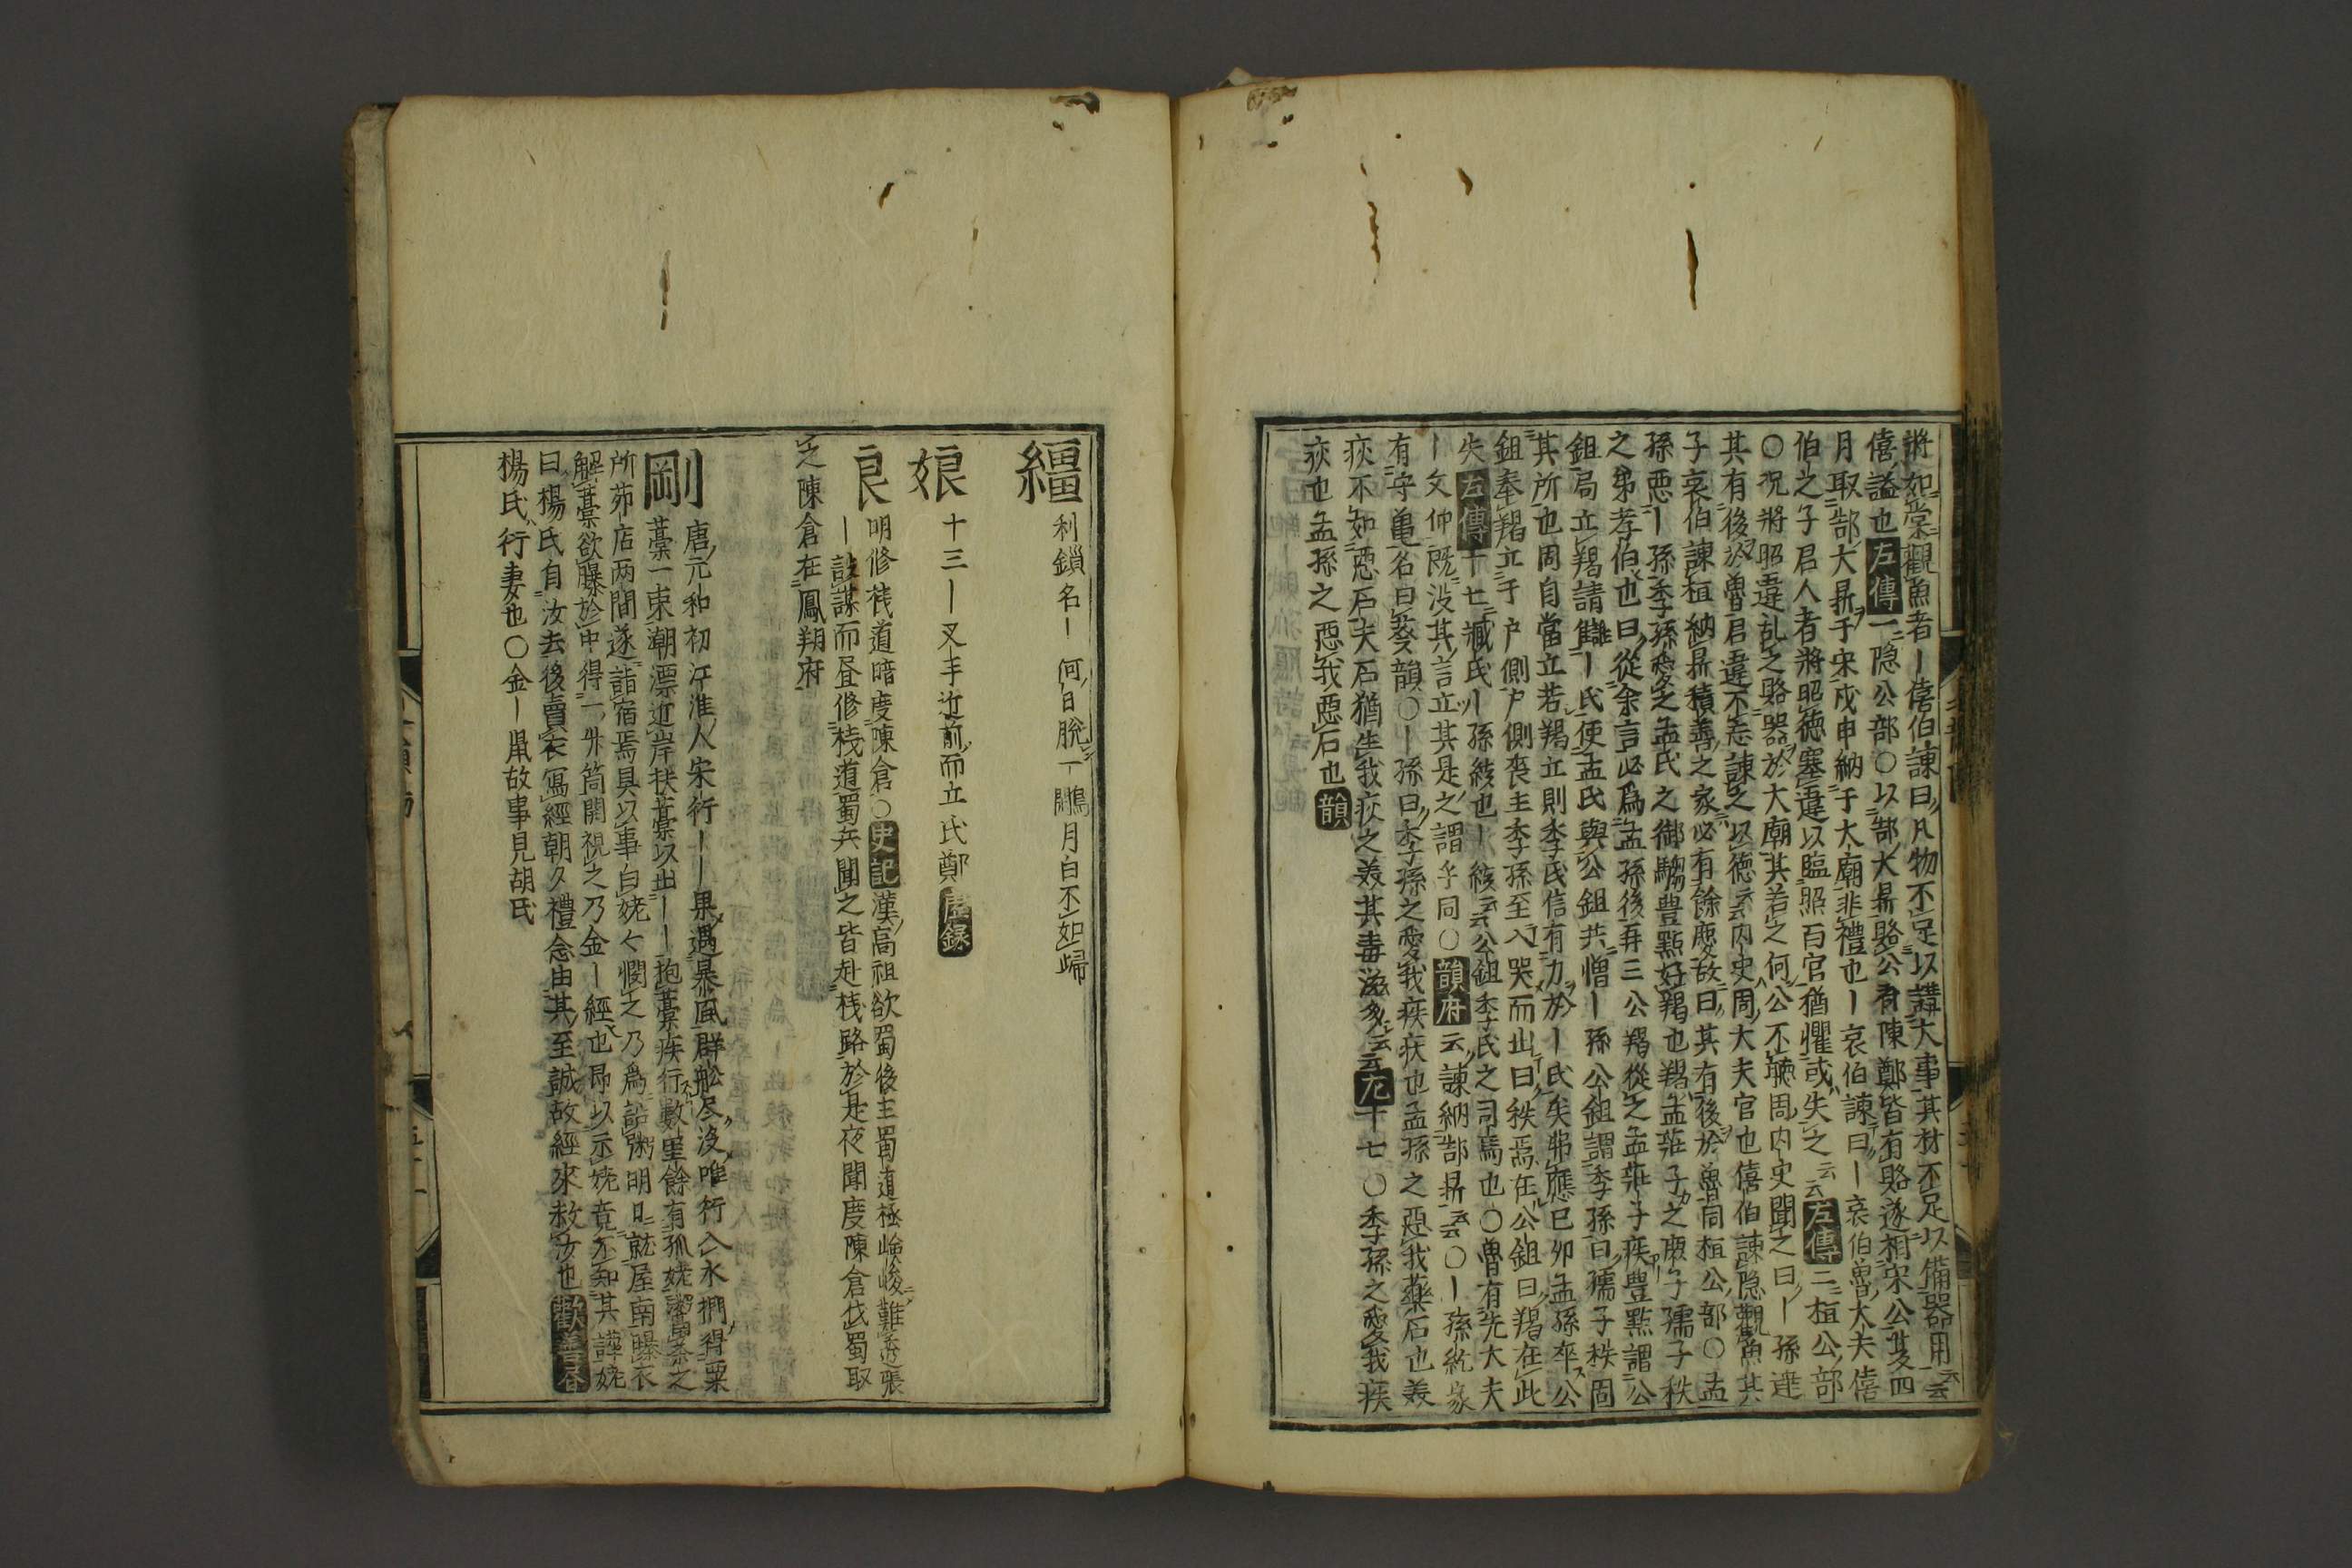 將如棠觀魚者｜僖伯諫曰凡物不足以講大事其材不足以備器用云云
僖謚也左傳一隠公部○以郜大鼎賂公有陳鄭皆有賂遂相宋公夏四
月取郜大鼎于宋戊申納于大廟非禮也｜哀伯諫曰｜哀伯魯大夫僖
伯之子君人者將昭徳塞違以臨照百官猶懼或失之云云左傳二桓公部
○况將昭違乱之賂器於大廟其若之何公不聽周内史聞之曰｜孫達
其有後於魯君違不忘諫之以徳云云内史周大夫官也僖伯諫隠觀魚其
子哀伯諫桓納鼎積善之家必有餘慶故曰其有後於魯同桓公部○孟
孫惡｜孫季孫愛之孟氏之御騶豊點好羯也羯孟莊子之庶子孺子秩
之弟孝伯也曰從余言必爲孟孫後再三公羯從之孟莊子疾豊點謂公
鉏局立羯請讎｜氏使孟氏與公鉏共憎｜孫公鉏謂季孫曰孺子秩固
其所也周自當立若羯立則季氏信有力於｜氏矣弗應已夘孟孫卒公
鉏奉羯立于户側户側喪主季孫至入哭而出曰秩焉在公鉏曰羯在此
矣左傳十七臧氏｜孫紇也｜紇云云公鉏季氏之司馬也○魯有先大夫
｜文仲既没其言立其是之謂乎同○韻府云諫納郜鼎云云○｜孫紇家
有守亀名曰蔡韻○｜孫曰季孫之愛我疾疢也孟孫之惡我藥石也美
疢不如惡石夫石猶生我疢之美其毒滋多云云左十七○季孫之愛我疾
疢也孟孫之惡我惡石也韻
繮 利鎖名｜何日脱一鵰月白不如歸
娘 十三｜叉手近前而立氏鄭歴録
良 明修棧道暗度陳倉○史記漢高祖欲蜀後主蜀道極嶮峻難透張
｜設謀而昼修棧道蜀兵聞之皆赴棧路於是夜閒度陳倉伐蜀取
之陳倉在鳳翔府
剛 唐元和初江淮人宋行｜｜果遇暴風群舩尽没唯行入水捫得粟
藁一束潮漂近岸扶藁以出｜｜抱藁疾行數里餘有孤姥鬻茶之
所茆店两間遂詣宿焉具以事白姥々憫之乃爲詣粥明日就屋南曝衣
解藁欲曝於中得一外筒開視之乃金｜經也即以示姥竟不知其譁姥
曰楊氏自汝去後賣衣寫經朝夕禮念由其至誠故經來救汝也歡善合
楊氏行妻也○金｜鼠故事見胡氏